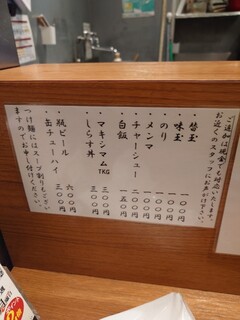 ご送和は現金でも対応いたします
お近くのスタッフにお声がけ下さい。
・替玉 一〇〇円
・味玉 一〇〇円
・のり 一〇〇円
・メンマ 一〇〇円
・チャーシュー 二〇〇円
・白飯 一五〇円
・マキシマムTKG 三〇〇円
・しらす丼 三〇〇円
・瓶ビール 六〇〇円
・缶チューハイ 三〇〇円
つけ麺にはスープ割りもござい
ますのでお申し付けください。